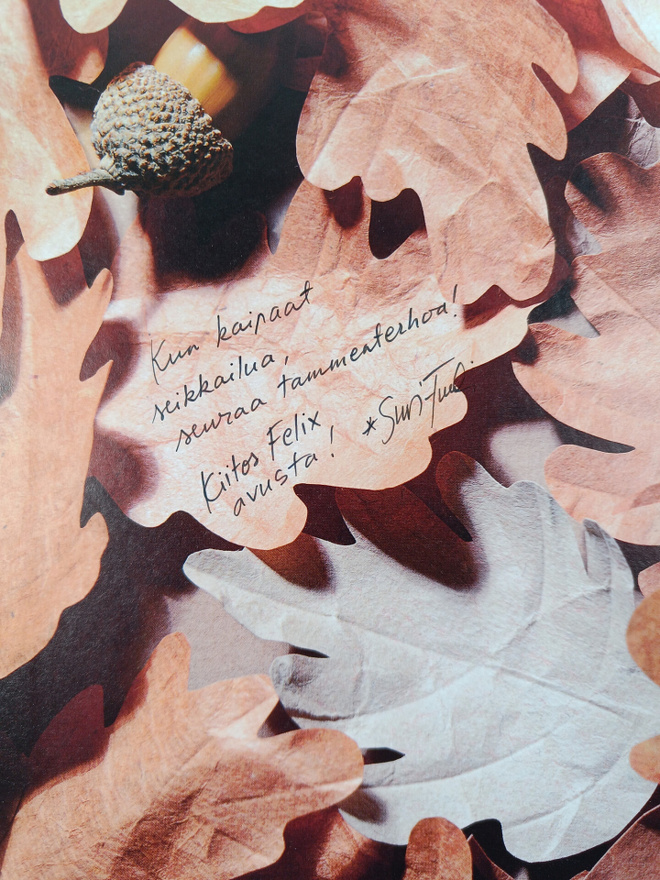 Kun kaipaat
seikkailua,
seuraa tammenterhoa!
Kiitos Felix
avusta!